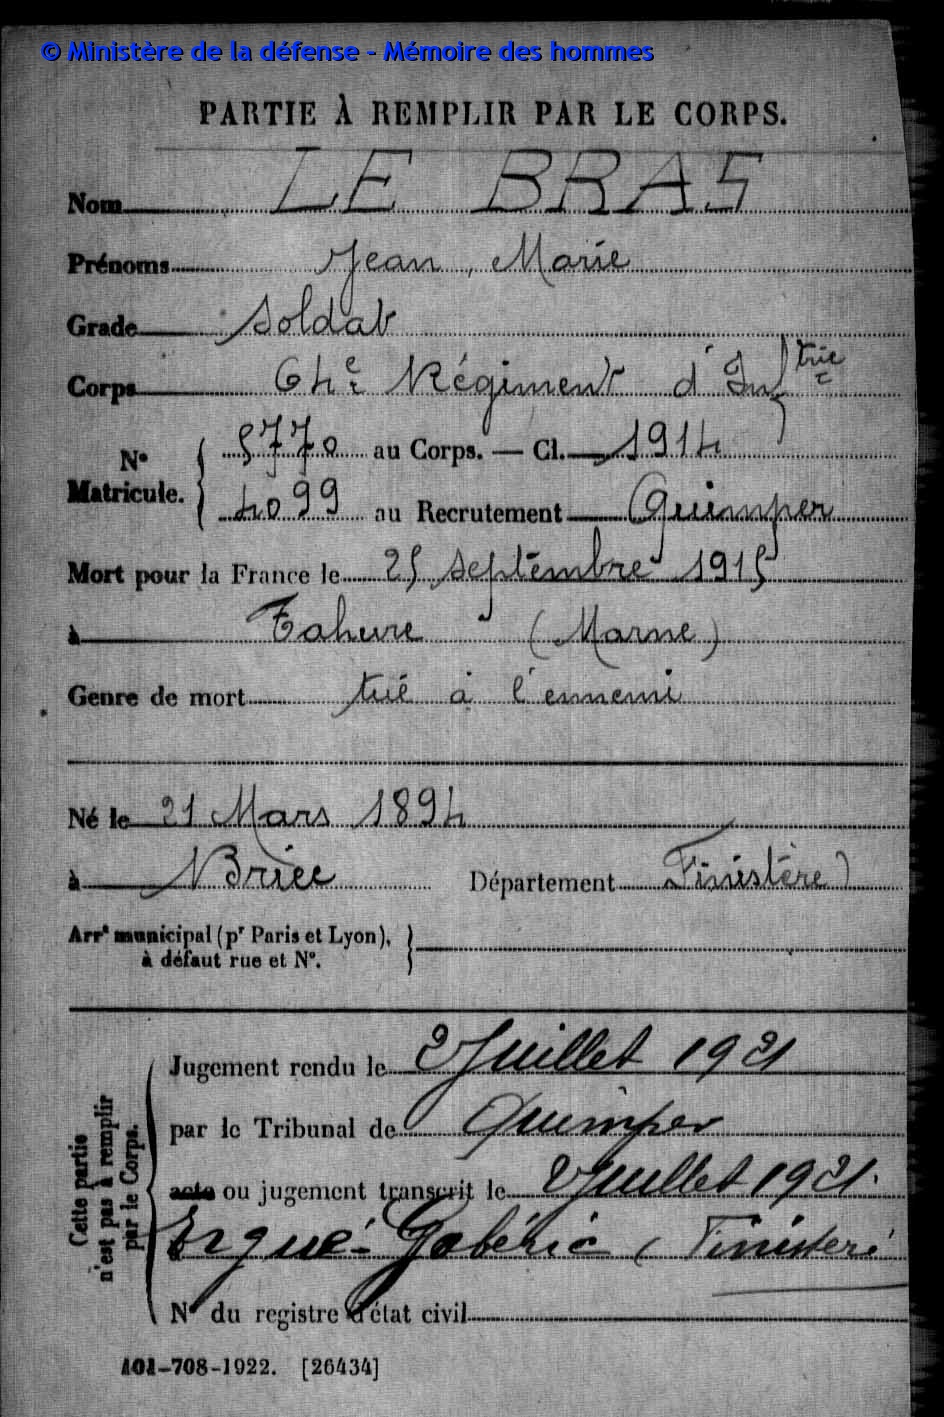 © Ministère de la défense - Mémoire des hommes
PARTIE À REMPLIR PAR LE CORPS.
Nom LE BRAS
Prénoms Jean, Marie
Grade Soldat
Corps 64e Régiment d'Inftrie
N° Matricule. { 5770 au Corps. — Cl. 1914
4099 au Recrutement Quimper
Mort pour la France le 25 septembre 1915
à Tahure (Marne)
Genre de mort tué à l'ennemi
Né le 21 Mars 1894
à Briec Département Finistère)
Arrt municipal (pr Paris et Lyon), }
à défaut rue et N°.
Cette partie n'est pas à remplir par le Corps.
Jugement rendu le 2 Juillet 1921
par le Tribunal de Quimper
acte ou jugement transcrit le 2 Juillet 1921.
à Ergué-Gabéric (Finistère
N° du registre d'état civil
101-708-1922. [26434]